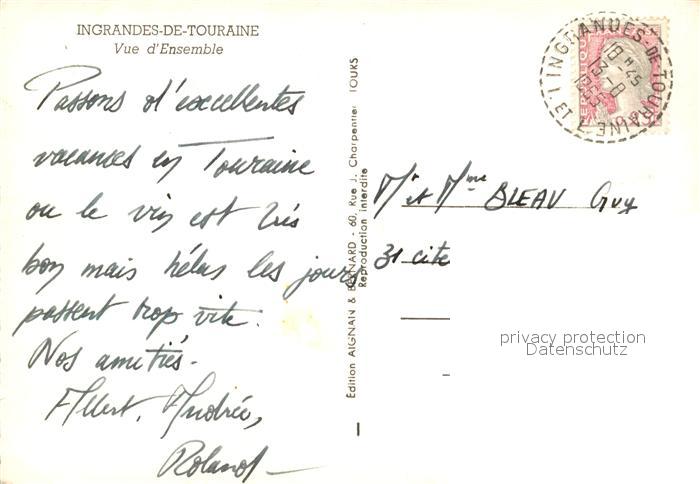 INGRANDES-DE-TOURAINE
Vue d'Ensemble
Passons d'excellentes
vacances en Touraine
ou le vin est très
bon mais hélas les jours
passent trop vite.
Nos amitiés.
Albert, Andrée,
Roland
Edition AIGNAN & BERNARD - 60, Rue J. Charpentier TOURS
Reproduction interdite
INGRANDES-DE-TOURAINE
18 H 45
13 - 8
I ET L
Mr et Mme BLEAU Guy
31 cité
privacy protection
Datenschutz